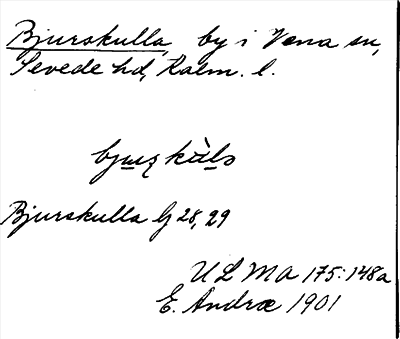 Bjurskulla, by i Vena sn,
Sevede hd, Kalm. l.
Bjurskulla lj 28, 29
ULMA 175:148a
E. Andræ 1901